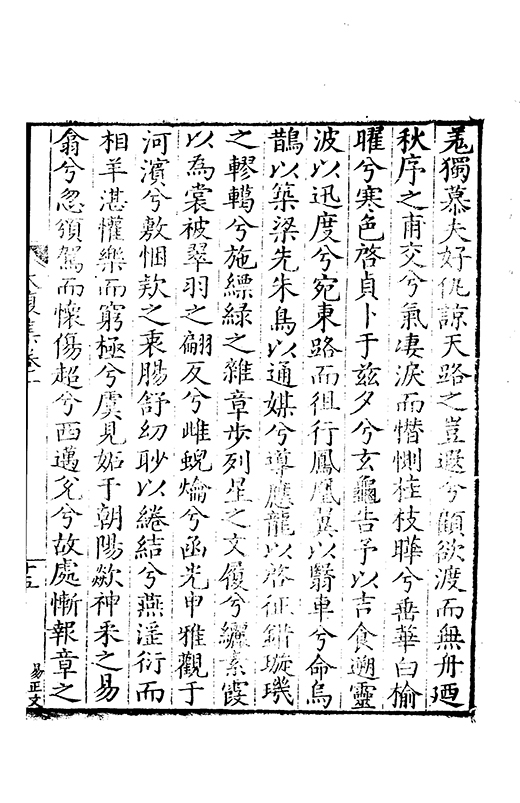 冕獨慕夫好仇諒天路之豈遐兮顧欲渡而無舟迺
秋序之甫交兮氣凄淚而憯惻桂枝曄兮垂華白榆
曜兮寒色啓貞卜于兹夕兮玄龜告予以吉食遡靈
波以迅度兮宛東路而徂行鳳凰翼以翳車兮命烏
鵲以築梁先朱鳥以通媒兮導應龍以啓征錯璇璣
之轇轕兮施縹緑之雜章步列星之文履兮纚素霞
以為裳被翠羽之翩反兮雌蜺爚兮函光申雅觀于
河濱兮敷悃欵之衷腸舒幼眇以綣結兮燕淫衍而
相羊湛懽樂而窮極兮虞見妬于朝陽歘神釆之易
翕兮忽頓駕而懷傷超兮西邁兊兮故處慚報章之
卷十
十五
易正文